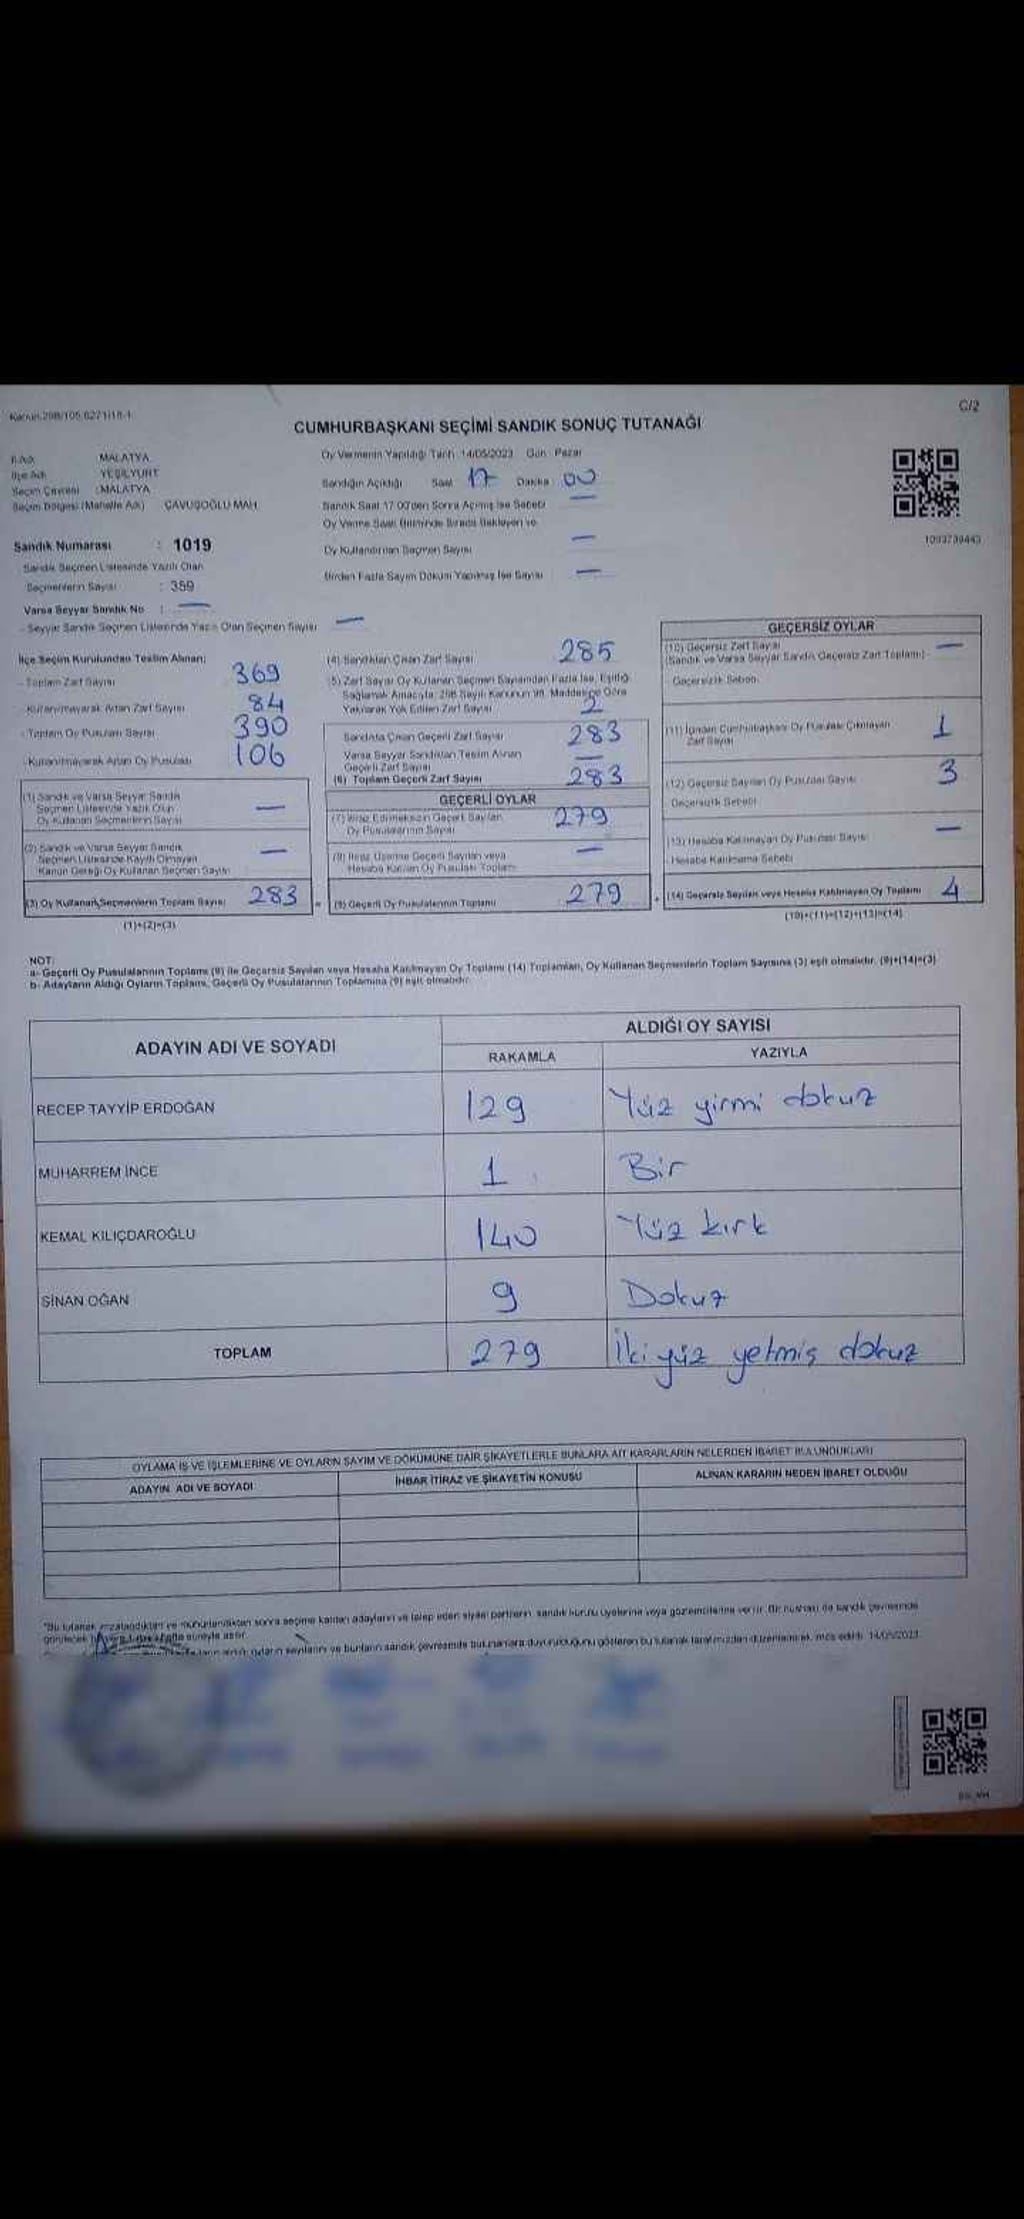 C/2
CUMHURBAŞKANI SEÇİMİ SANDIK SONUÇ TUTANAĞI
İl Adı MALATYA
İlçe Adı YEŞİLYURT
Seçim Çevresi : MALATYA
Seçim Bölgesi (Mahalle Adı) ÇAVUŞOĞLU MAH.
Sandık Numarası : 1019
Sandık Seçmen Listesinde Yazılı Olan
Seçmenlerin Sayısı : 359
Varsa Seyyar Sandık No : —
- Seyyar Sandık Seçmen Listesinde Yazılı Olan Seçmen Sayısı —
Oy Vermenin Yapıldığı Tarih 14/05/2023 Gün Pazar
Sandığın Açıldığı Saat 17 Dakika 00
Sandık Saat 17.00'den Sonra Açılmış İse Sebebi —
Oy Verme Saati Bitiminde Sırada Bekleyen ve
Oy Kullandırılan Seçmen Sayısı —
Birden Fazla Sayım Döküm Yapılmış İse Sayısı —
1093739443
İlçe Seçim Kurulundan Teslim Alınan;
- Toplam Zarf Sayısı 369
- Kullanılmayarak Artan Zarf Sayısı 84
- Toplam Oy Pusulası Sayısı 390
- Kullanılmayarak Artan Oy Pusulası 106
(1) Sandık ve Varsa Seyyar Sandık
Seçmen Listesinde Yazılı Olan
Oy Kullanan Seçmenlerin Sayısı —
(2) Sandık ve Varsa Seyyar Sandık
Seçmen Listesine Kayıtlı Olmayan
Kanun Gereği Oy Kullanan Seçmen Sayısı —
(3) Oy Kullanan Seçmenlerin Toplam Sayısı 283
(1)+(2)=(3)
(4) Sandıktan Çıkan Zarf Sayısı 285
(5) Zarf Sayısı Oy Kullanan Seçmen Sayısından Fazla İse, Eşitliği
Sağlamak Amacıyla, 298 Sayılı Kanunun 98. Maddesine Göre
Yakılarak Yok Edilen Zarf Sayısı 2
Sandıkta Çıkan Geçerli Zarf Sayısı 283
Varsa Seyyar Sandıktan Teslim Alınan
Geçerli Zarf Sayısı —
(6) Toplam Geçerli Zarf Sayısı 283
GEÇERLİ OYLAR
(7) İtiraz Edilmeksizin Geçerli Sayılan
Oy Pusulalarının Sayısı 279
(8) İtiraz Üzerine Geçerli Sayılan veya
Hesaba Katılan Oy Pusulası Toplamı —
= (9) Geçerli Oy Pusulalarının Toplamı 279
GEÇERSİZ OYLAR
(10) Geçersiz Zarf Sayısı —
(Sandık ve Varsa Seyyar Sandık Geçersiz Zarf Toplamı)
Geçersizlik Sebebi
(11) İçinden Cumhurbaşkanı Oy Pusulası Çıkmayan
Zarf Sayısı 1
(12) Geçersiz Sayılan Oy Pusulası Sayısı 3
Geçersizlik Sebebi
(13) Hesaba Katılmayan Oy Pusulası Sayısı —
Hesaba Katılmama Sebebi
+ (14) Geçersiz Sayılan veya Hesaba Katılmayan Oy Toplamı 4
(10)+(11)+(12)+(13)=(14)
NOT:
a- Geçerli Oy Pusulalarının Toplamı (9) ile Geçersiz Sayılan veya Hesaba Katılmayan Oy Toplamı (14) Toplamları, Oy Kullanan Seçmenlerin Toplam Sayısına (3) eşit olmalıdır. (9)+(14)=(3)
b- Adayların Aldığı Oyların Toplamı, Geçerli Oy Pusulalarının Toplamına (9) eşit olmalıdır.
ADAYIN ADI VE SOYADI ALDIĞI OY SAYISI
RAKAMLA YAZIYLA
RECEP TAYYİP ERDOĞAN 129 Yüz yirmi dokuz
MUHARREM İNCE 1 Bir
KEMAL KILIÇDAROĞLU 140 Yüz kırk
SİNAN OĞAN 9 Dokuz
TOPLAM 279 İki yüz yetmiş dokuz
OYLAMA İŞ VE İŞLEMLERİNE VE OYLARIN SAYIM VE DÖKÜMÜNE DAİR ŞİKAYETLERLE BUNLARA AİT KARARLARIN NELERDEN İBARET BULUNDUKLARI
ADAYIN ADI VE SOYADI İHBAR İTİRAZ VE ŞİKAYETİN KONUSU ALINAN KARARIN NEDEN İBARET OLDUĞU
"Bu tutanak imzalandıktan ve mühürlendikten sonra seçime katılan adayların ve talep eden siyasi partilerin sandık kurulu üyelerine veya gözlemcilerine verilir. Bir nüshası da sandık çevresinde
oyların sayılarını ve bunların sandık çevresinde bulunanlara duyurulduğunu gösteren bu tutanak tarafımızdan düzenlenerek imza edildi. 14/05/2023